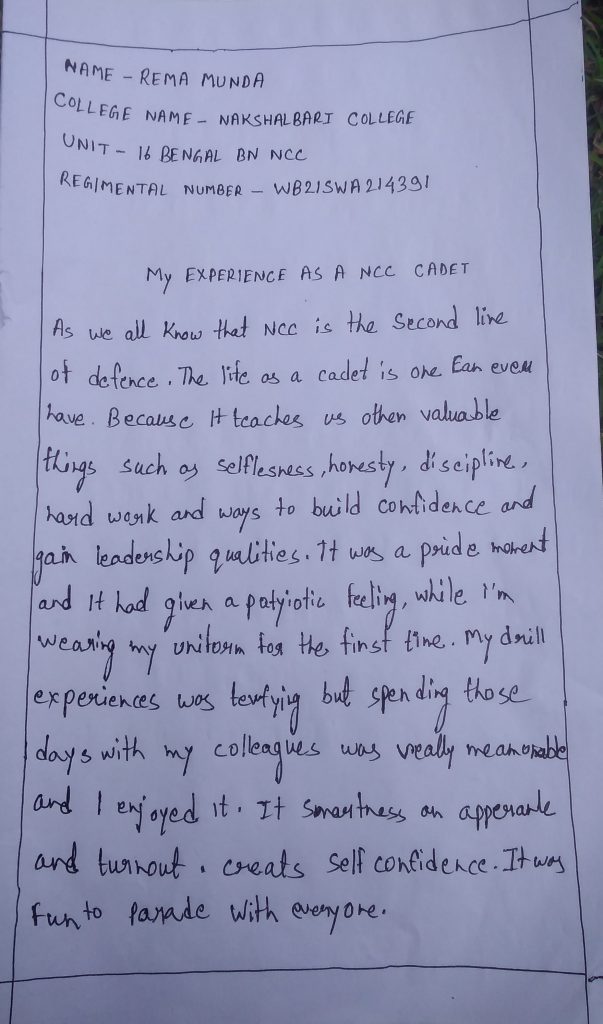 NAME – REMA MUNDA
COLLEGE NAME – NAKSHALBARI COLLEGE
UNIT – 16 BENGAL BN NCC
REGIMENTAL NUMBER – WB21SWA214391
My EXPERIENCE AS A NCC CADET
As we all Know that NCC is the Second line
of defence. The life as a cadet is one Can ever
have. Because It teaches us other valuable
things such as selflesness, honesty, discipline,
hard work and ways to build confidence and
gain leadership qualities. It was a pride moment
and It had given a patyiotic feeling, while I'm
wearing my uniform for the first time. My drill
experiences was terrfying but spending those
days with my colleagues was really meamorable
and I enjoyed it. It smartness an
and turnout. creats self confidence. It was
Fun to Parade with everyone.